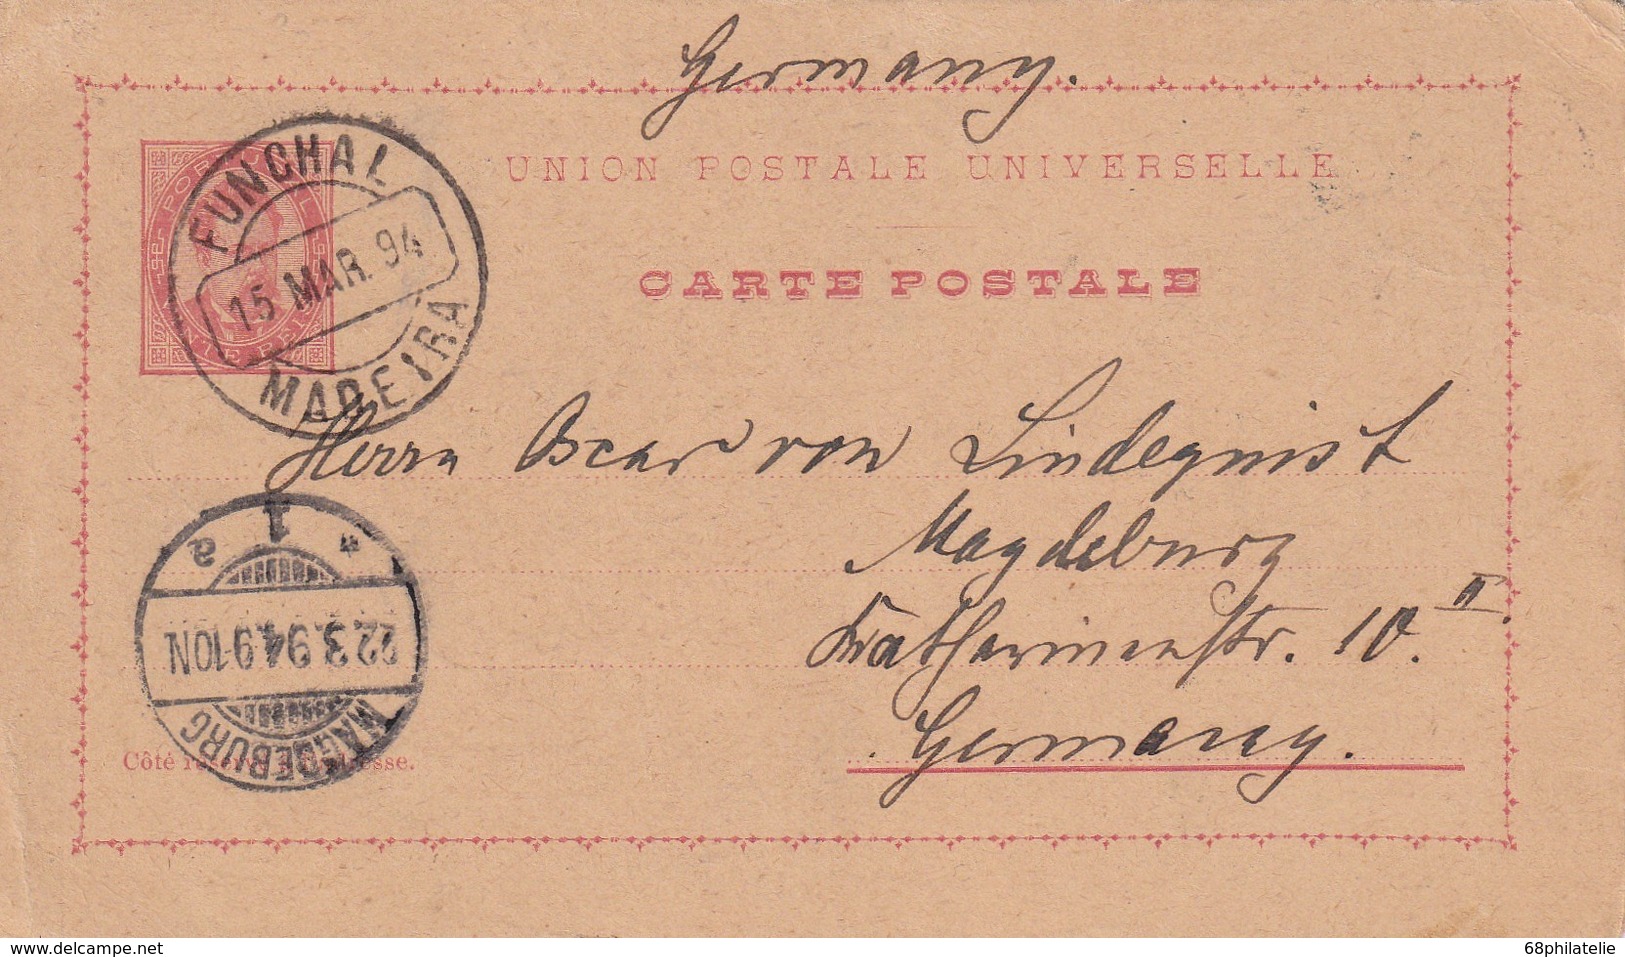 Germany.
UNION POSTALE UNIVERSELLE
CARTE POSTALE
FUNCHAL
15 MAR. 94
MADEIRA
Herrn Oscar von Lindequist
Magdeburg
Katharinenstr. 10. II
Germany.
1
a *
22.3.94.9-10N
MAGDEBURG
Côté réservé à l'adresse.
www.delcampe.net
68philatelie